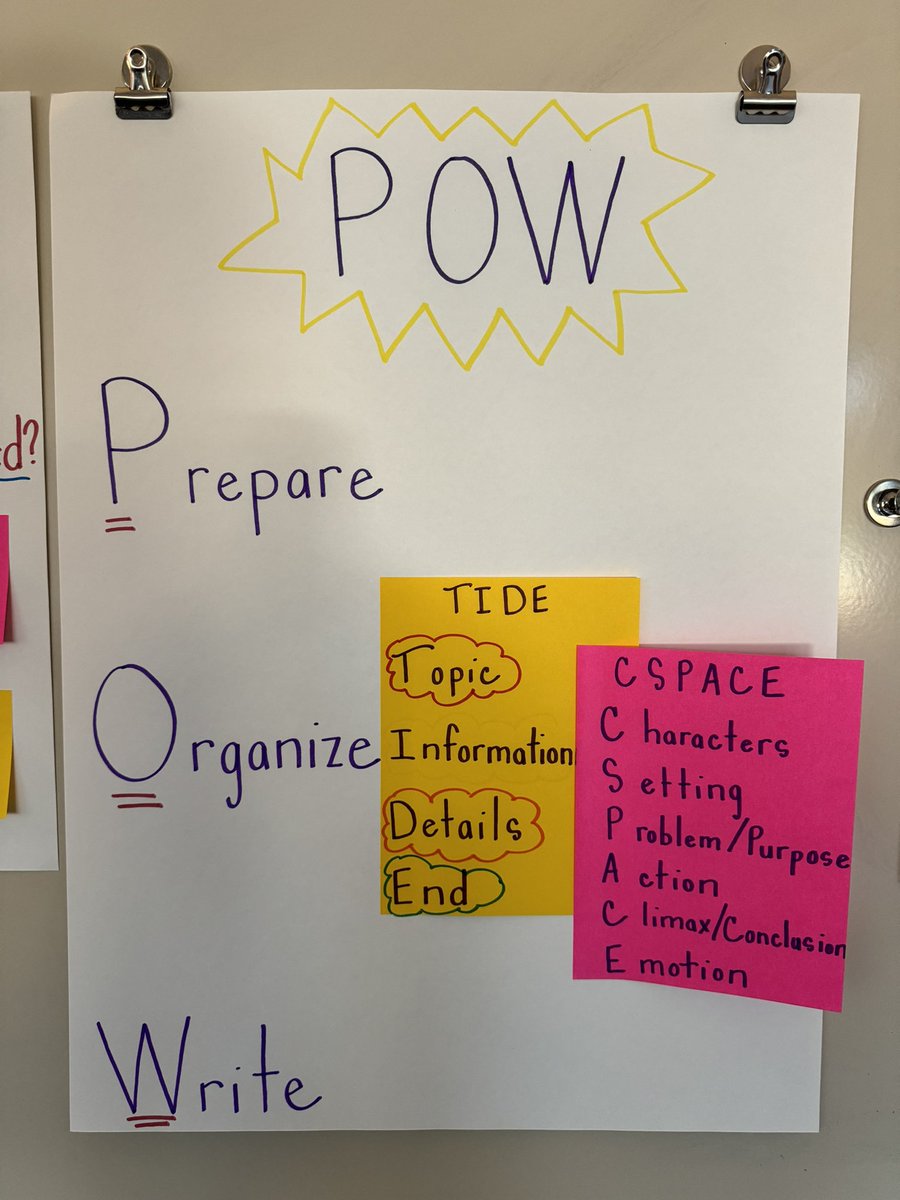 POW
d?
Prepare
Organize
TIDE
Topic
Information
Details
End
CSPACE
Characters
Setting
Problem/Purpose
Action
Climax/Conclusion
Emotion
Write